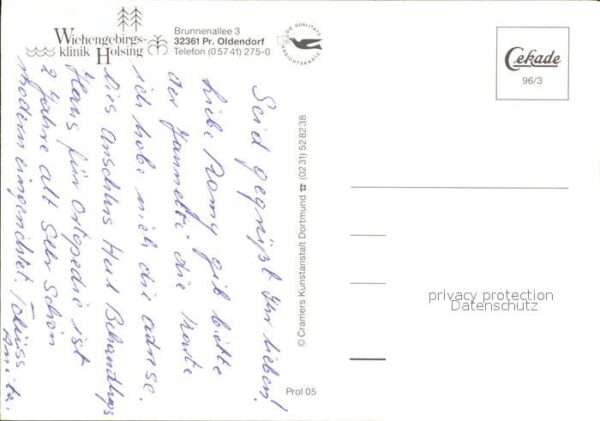 Wiehengebirgs-
klinik Holsing
Brunnenallee 3
32361 Pr. Oldendorf
Telefon (05741) 275-0
DIE QUALITÄTS
ANSICHTSKARTE
Cekade
96/3
Seid gegrüßt Ihr lieben!
Liebe Romy gib bitte
der Jannette die Karte
ich habe mich die adrese.
Dies Anschlus Heil Behandlungs
Haus für Ortopedie ist
2 Jahre alt Sehr Schön
modern eingerichtet, Tschüss
Anita.
© Cramers Kunstanstalt Dortmund ☎ (0231) 528238
Prol 05
privacy protection
Datenschutz